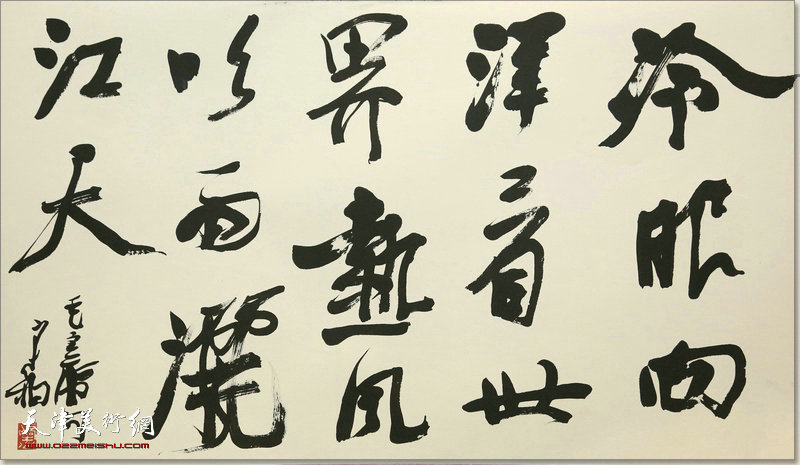 冷眼向
洋看世
界熱风
吹雨灑
江天
毛主席
天津美術網
www.022meishu.com